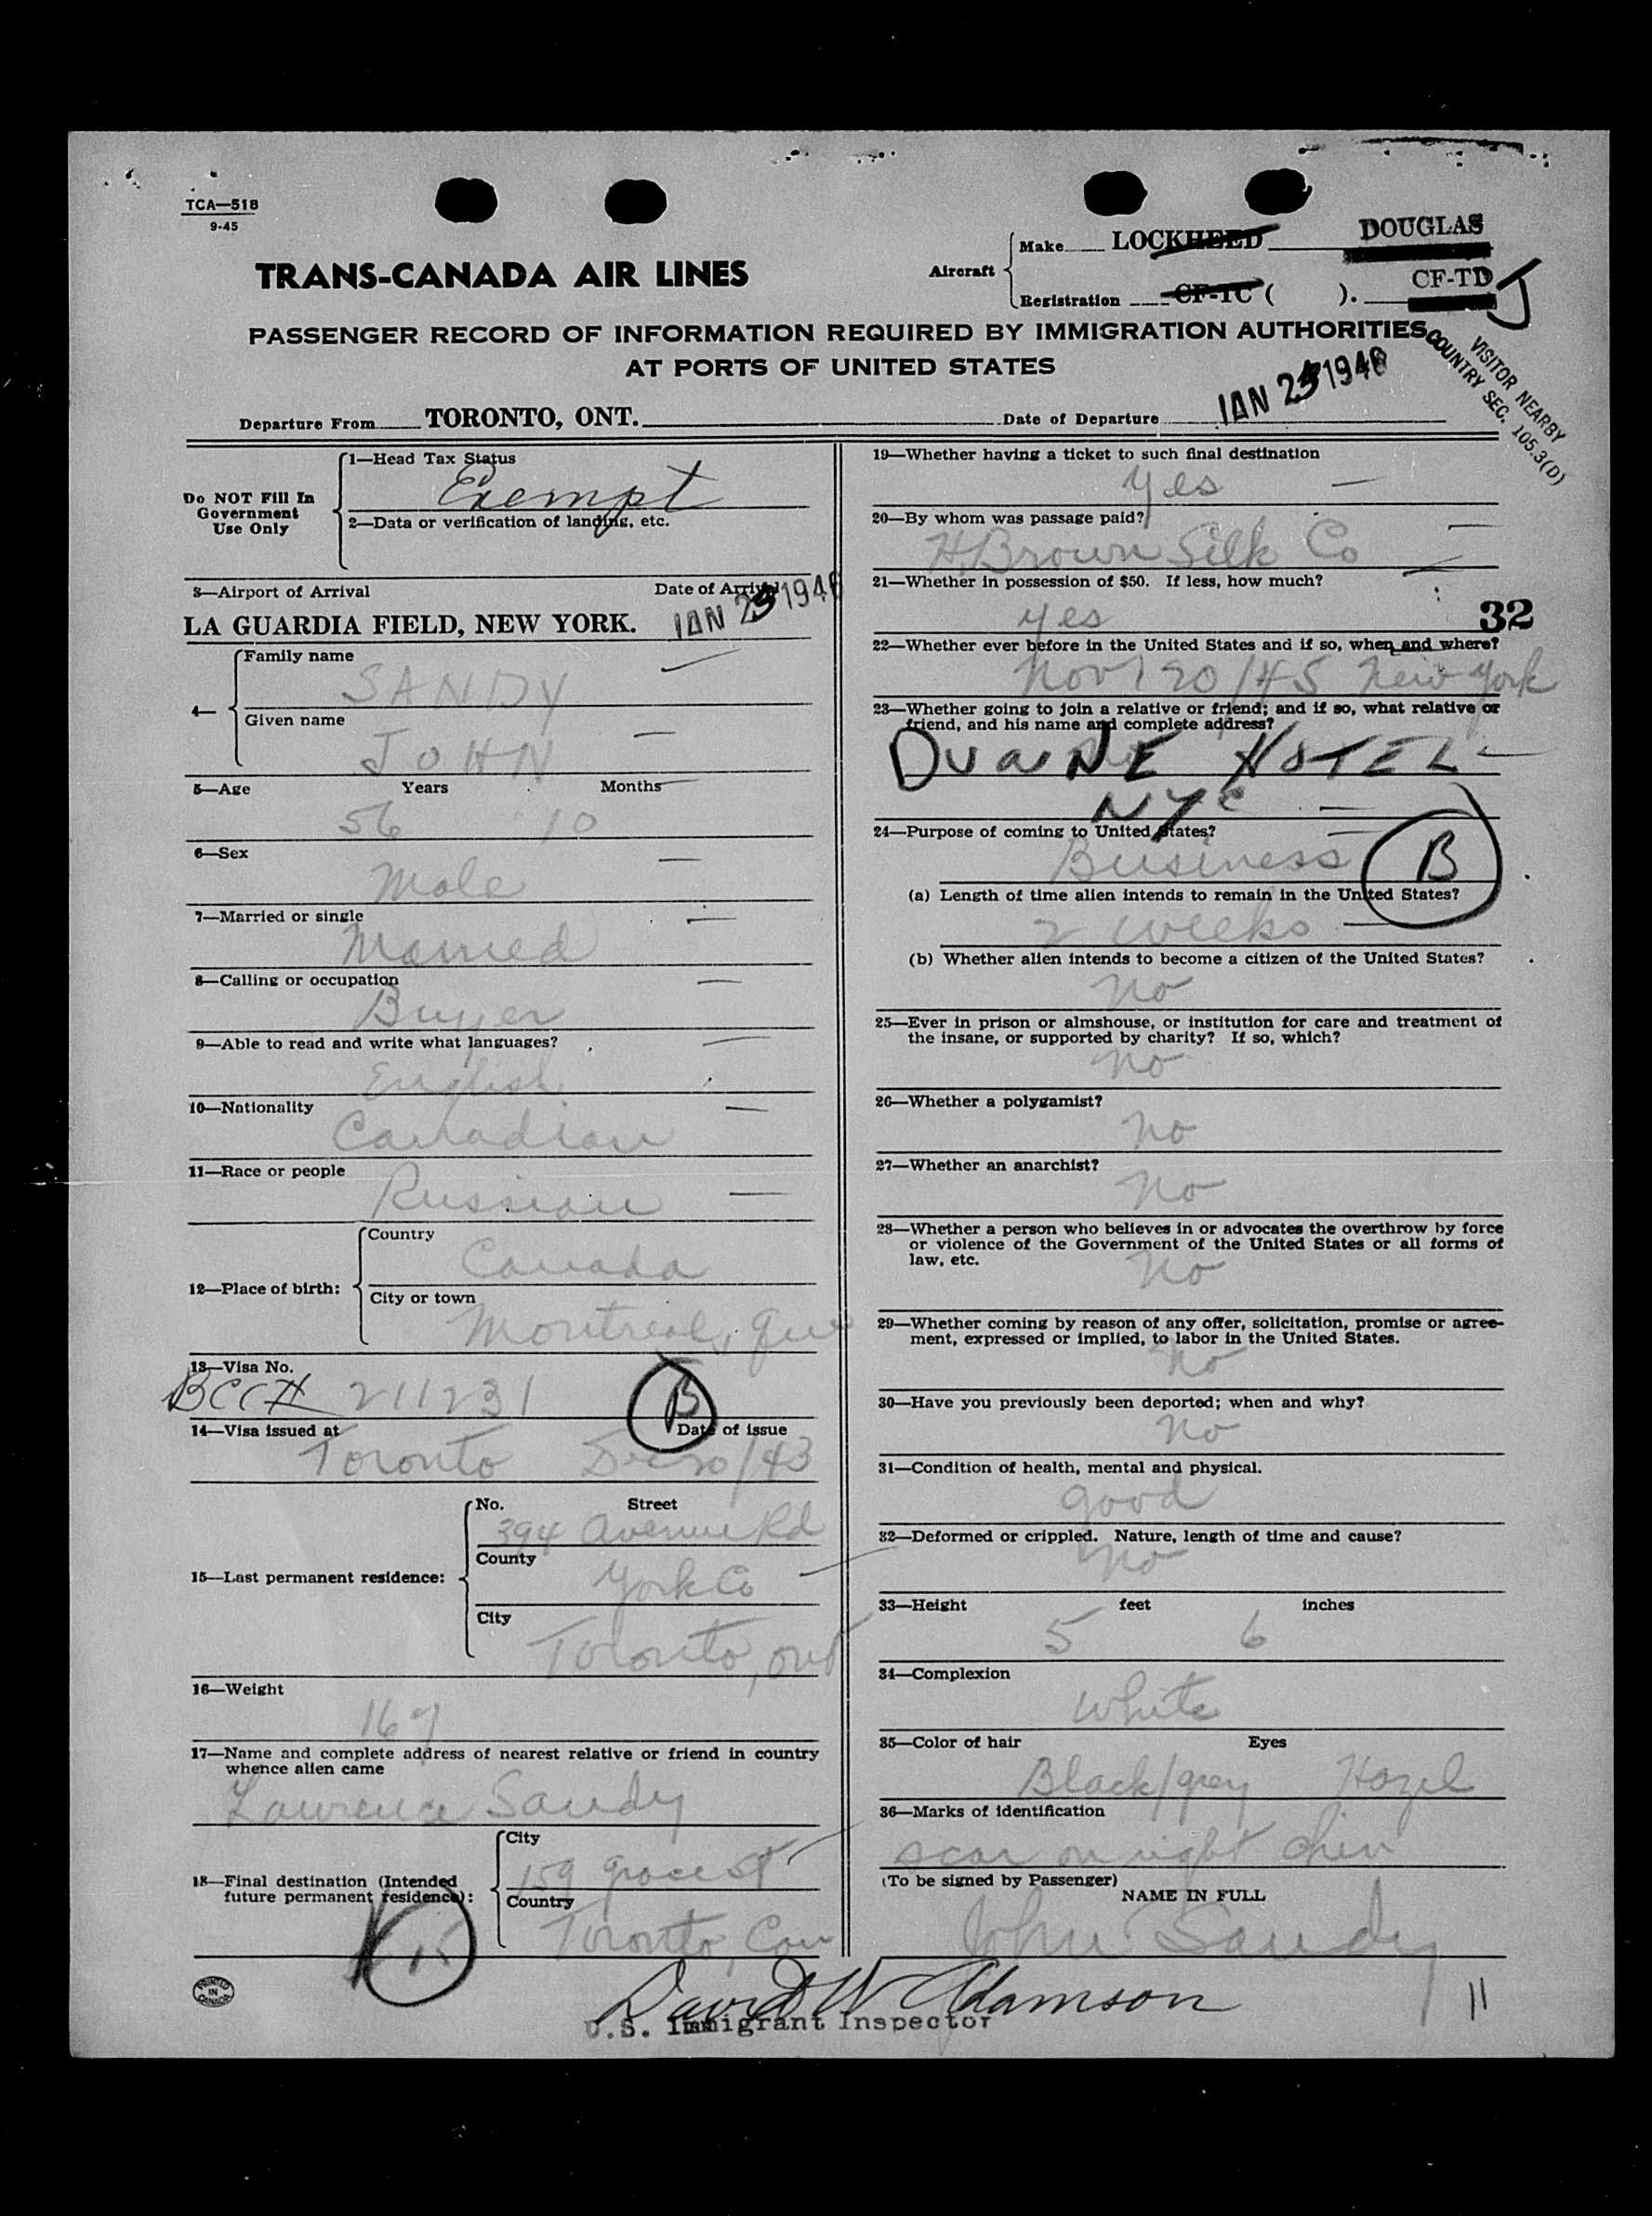 TCA—518
9-45
TRANS-CANADA AIR LINES
Aircraft
Make LOCKHEED DOUGLAS
Registration CF-TC ( ). CF-TD J
PASSENGER RECORD OF INFORMATION REQUIRED BY IMMIGRATION AUTHORITIES
AT PORTS OF UNITED STATES
VISITOR NEARBY
COUNTRY SEC. 105.3(D)
Departure From TORONTO, ONT. Date of Departure JAN 1946
Do NOT Fill In
Government
Use Only
1—Head Tax Status
Exempt
2—Data or verification of landing, etc.
3—Airport of Arrival Date of Arrival
LA GUARDIA FIELD, NEW YORK. JAN 1946
4—
Family name
SANDY
Given name
JOHN
5—Age Years Months
56 10
6—Sex
Male
7—Married or single
Married
8—Calling or occupation
Buyer
9—Able to read and write what languages?
English
10—Nationality
Canadian
11—Race or people
Russian
12—Place of birth:
Country
Canada
City or town
Montreal, Que
13—Visa No.
BCCH 211231 B
14—Visa issued at Date of issue
Toronto Dec 20/43
15—Last permanent residence:
No. Street
394 Avenue Rd
County
York Co
City
Toronto, Ont
16—Weight
167
17—Name and complete address of nearest relative or friend in country
whence alien came
Lawrence Sandy
18—Final destination (Intended
future permanent residence):
City
159 Grace St
Country
Toronto, Can
15
PRINTED
IN
CANADA
19—Whether having a ticket to such final destination
yes
20—By whom was passage paid?
H. Brown Silk Co
21—Whether in possession of $50. If less, how much?
yes
32
22—Whether ever before in the United States and if so, when and where?
Nov 20/45 New York
23—Whether going to join a relative or friend; and if so, what relative or
friend, and his name and complete address?
DUaNE HOTEL
NYC
24—Purpose of coming to United States?
Business B
(a) Length of time alien intends to remain in the United States?
2 weeks
(b) Whether alien intends to become a citizen of the United States?
no
25—Ever in prison or almshouse, or institution for care and treatment of
the insane, or supported by charity? If so, which?
no
26—Whether a polygamist?
no
27—Whether an anarchist?
No
28—Whether a person who believes in or advocates the overthrow by force
or violence of the Government of the United States or all forms of
law, etc.
No
29—Whether coming by reason of any offer, solicitation, promise or agree-
ment, expressed or implied, to labor in the United States.
No
30—Have you previously been deported; when and why?
No
31—Condition of health, mental and physical.
good
32—Deformed or crippled. Nature, length of time and cause?
No
33—Height feet inches
5 6
34—Complexion
White
35—Color of hair Eyes
Black/grey Hazel
36—Marks of identification
scar on right chin
(To be signed by Passenger)
NAME IN FULL
John Sandy
David W Adamson
U.S. Immigrant Inspector
11